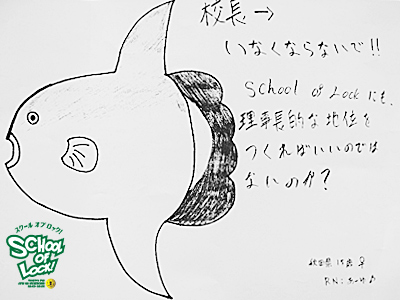 校長→
いなくならないで!!
School of Lockにも、
理事長的な地位を
つくればいいのでは
ないのか?
RN:
スクール オブ ロック!
SCHOOL
OF
LOCK!